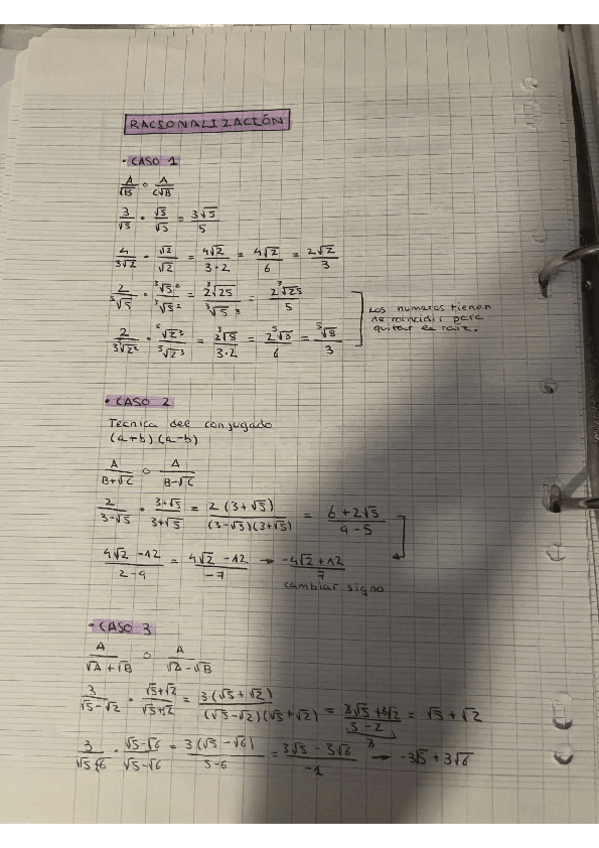 RACIONALIZACIÓN
• CASO 1
A/√B o A/C√B
3/√5 · √5/√5 = 3√5/5
4/3√2 · √2/√2 = 4√2/3·2 = 4√2/6 = 2√2/3
Los numeros tienen
de coincidir para
quitar la raiz.
• CASO 2
Tecnica del conjugado
(a+b)(a-b)
A/B+√C o A/B-√C
2/3-√5 · 3+√5/3+√5 = 2(3+√5)/(3-√5)(3+√5) = 6+2√5/9-5
4√2-12/2-9 = 4√2-12/-7 → -4√2+12/7
cambiar signo
• CASO 3
A/√A+√B o A/√A-√B
3/√5-√2 · √5+√2/√5+√2 = 3(√5+√2)/(√5-√2)(√5+√2) = 3√5+3√2/5-2 = √5+√2
3
3/√5+√6 · √5-√6/√5-√6 = 3(√5-√6)/5-6 = 3√5-3√6/-1 → -3√5+3√6